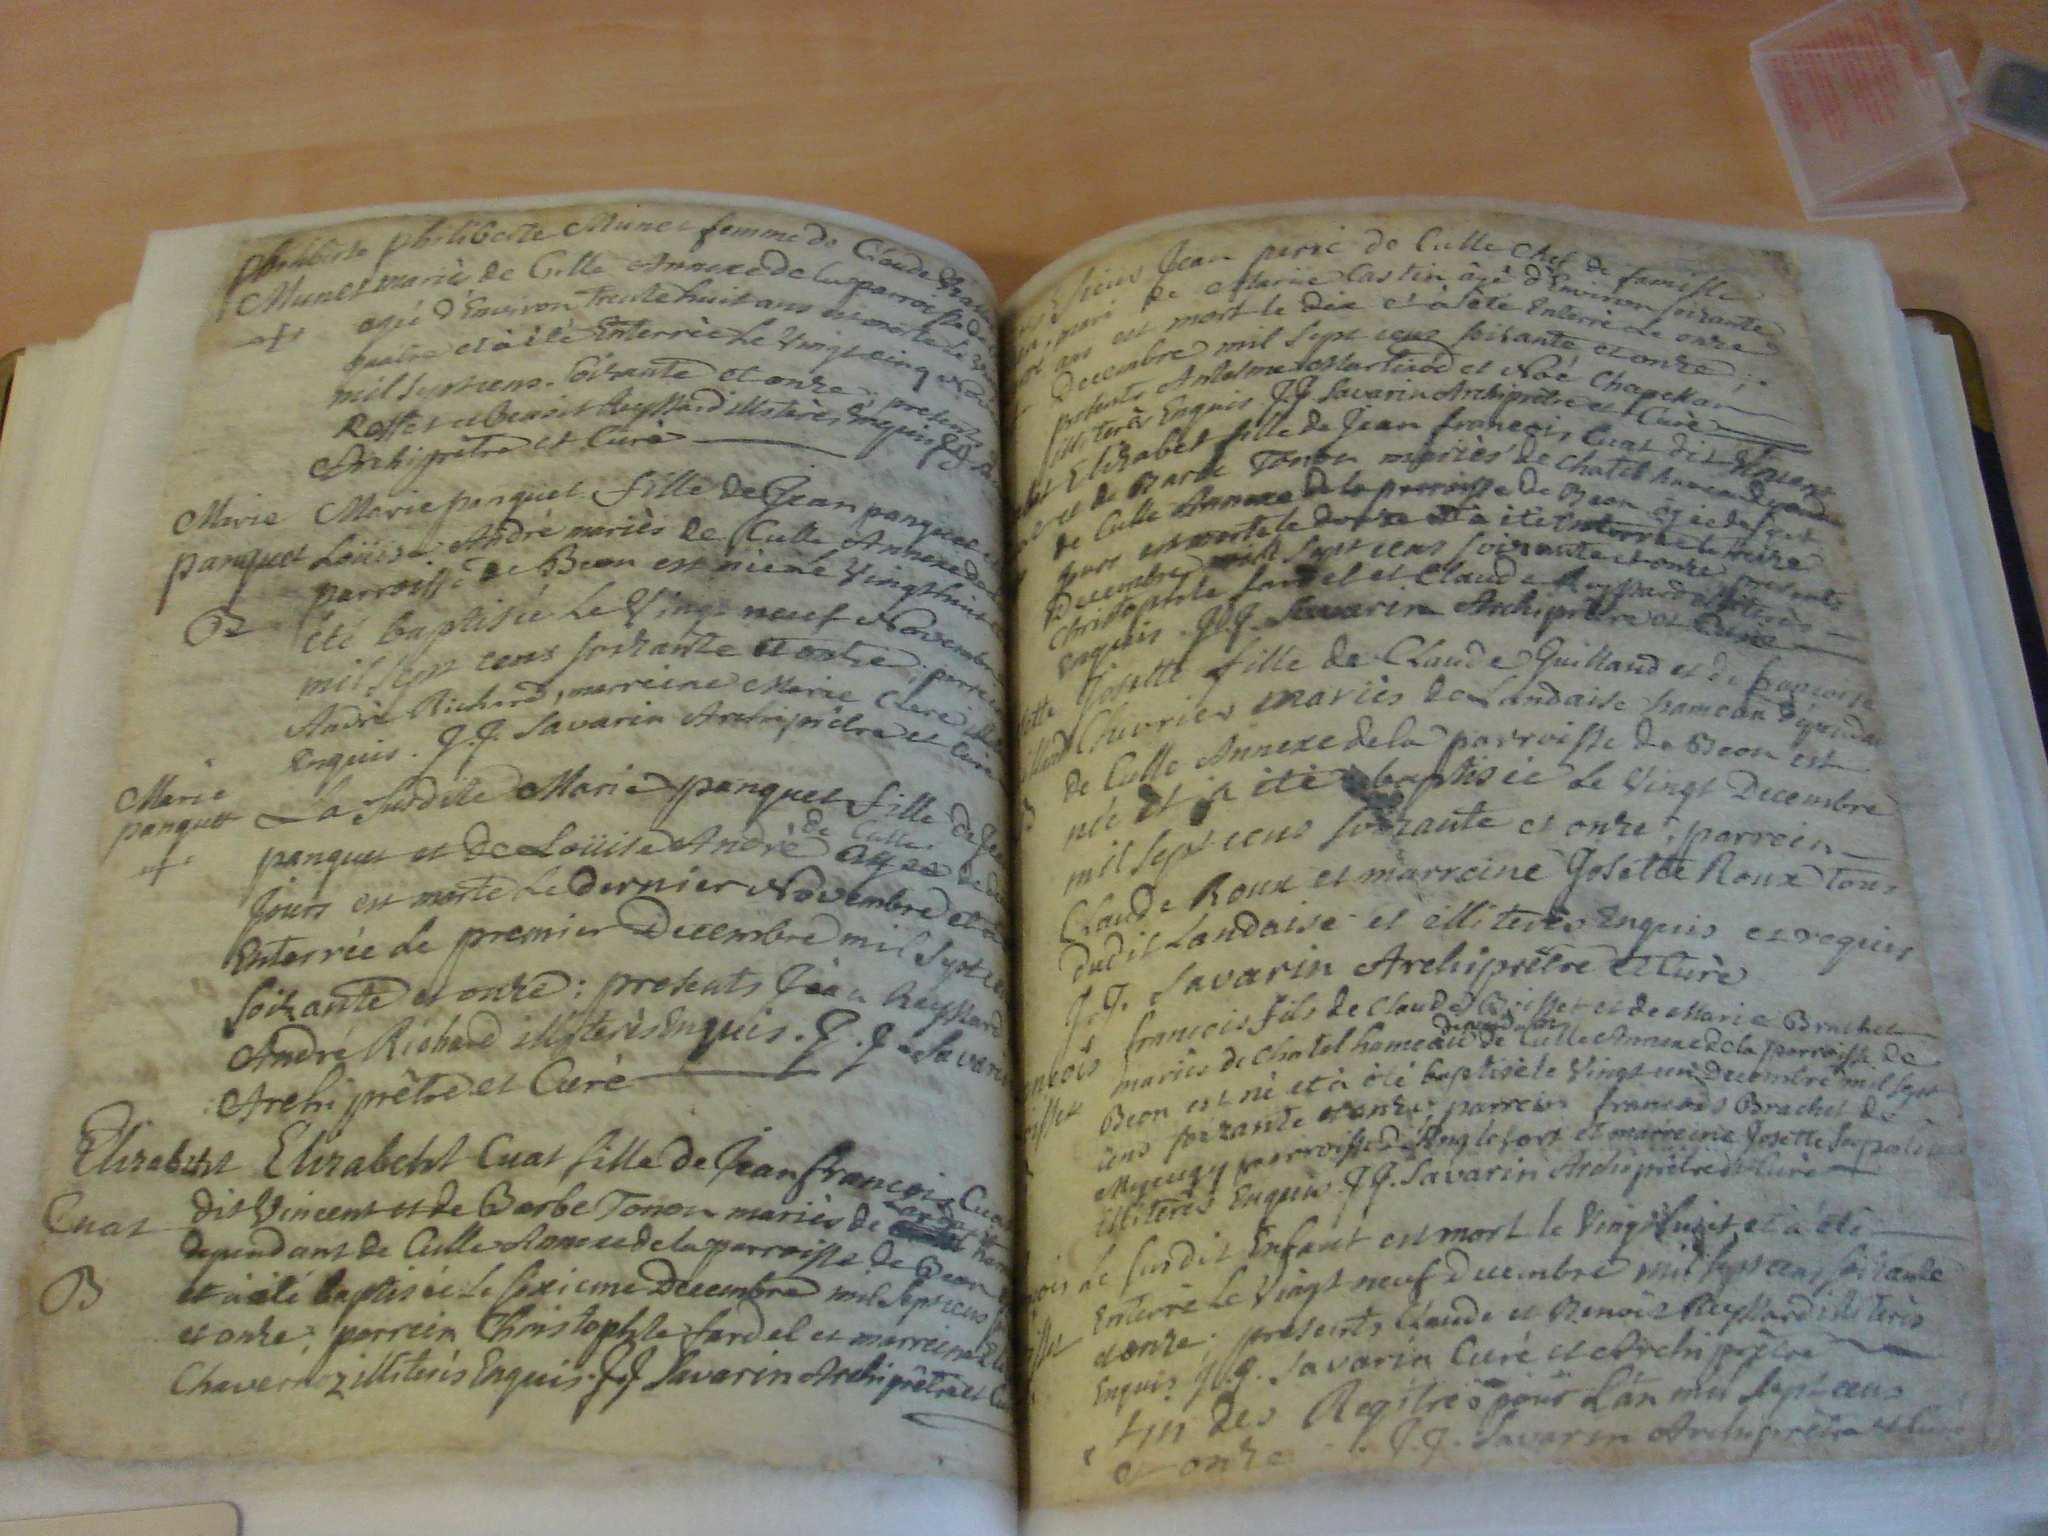 philiberte philiberte Munet femme de Claude
Munet mariés de Culle Annexe de la parroisse de
+ agée d'Environ trente huit ans est morte le
quatre et à été Enterrée Le Vingt cinq
mil sept cens soixante et onze; presents
Rosset et Benoit Reyssard illiterés Enquis J.J.
Archiprêtre et Curé
Marie Marie panquet fille de Jean panquet et
panquet Loüise André mariés de Culle Annexe de la
parroisse de Beon est niée le Vingt huit
B été baptisée Le Vingt neuf Novembre
mil sept cens soixante et onze; parrein
André Richard, marreine Marie Clere
Enquis. J.J. Savarin Archiprêtre et Curé
Marie La Susdite Marie panquet fille de Jean
de Culle
panquet panquet et de Loüise André agée de
+ jours est morte Le dernier Novembre et à
Enterrée Le premier Decembre mil sept cens
soixante et onze; presents Jean Reyssard
André Richard illiterés Enquis. J.J. Savarin
Archiprêtre et Curé
Elizabeht Elizabeht Cuat fille de Jean francois Cuat
Cuat dit Vincent et de Barbe Tonon mariés de
dependant de Culle Annexe de la parroisse de Beon
B et à été baptisée Le sixieme Decembre mil sept cens
et onze; parrein Christophle fardel et marreine
Chavernoz illiterés Enquis. J.J. Savarin Archiprêtre et Curé
Sieur Jean perié de Culle Chef de famille
mari de Marie Castin âgé d'Environ soixante
ans est mort le dix et à été Enterré le onze
Decembre mil sept cens soixante et onze;
presents Antelme Martinod et Noé Chapekan
illiterés Enquis J.J. Savarin Archiprêtre et Curé
Elizabet fille de Jean francois Cuat dit Vincent
et de Barbe Tonon mariés de Chatel hameau dependant
de Culle Annexe de la parroisse de Beon agée de sept
jours est morte le douze et à été Enterrée le treize
Decembre mil sept cens soixante et onze, presents
Christophle fardel et Claude Reyssard illiterés
Enquis. J.J. Savarin Archiprêtre et Curé
Josette fille de Claude Guilland et de francoise
Chevrier mariés de Landaise hameau dépendant
de Culle Annexe de la parroisse de Beon est
née et à été baptisée Le Vingt Decembre
mil sept cens soixante et onze; parrein
Claude Roux et marreine Josette Roux tous
dudit Landaise et illiterés Enquis et requis
J.J. Savarin Archiprêtre et Curé
francois fils de Claude Boisset et de Marie Brachet
dependant
mariés de Chatel hameau de Culle Annexe de la parroisse de
Beon est né et à été baptisé le Vingt un Decembre mil sept
cens soixante et onze; parrein francois Brachet de
parroisse d'Anglefort et marreine Josette
illiterés Enquis. J.J. Savarin Archiprêtre et Curé
Le susdit Enfant est mort le Vingt huit, et à été
Enterré Le Vingt neuf Decembre mil sept cens soixante
et onze; presents Claude et Benoit Reyssard illiterés
Enquis J.J. Savarin Curé et Archiprêtre
fin des Regitres pour L'an mil sept cens
et onze J.J. Savarin Archiprêtre et Curé